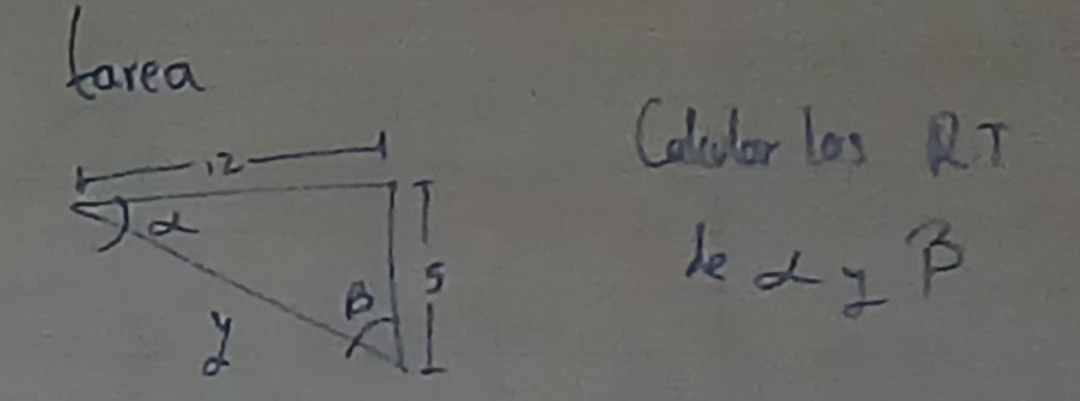 tarea
12
α
5
β
y
Calcular las RT
de α y β